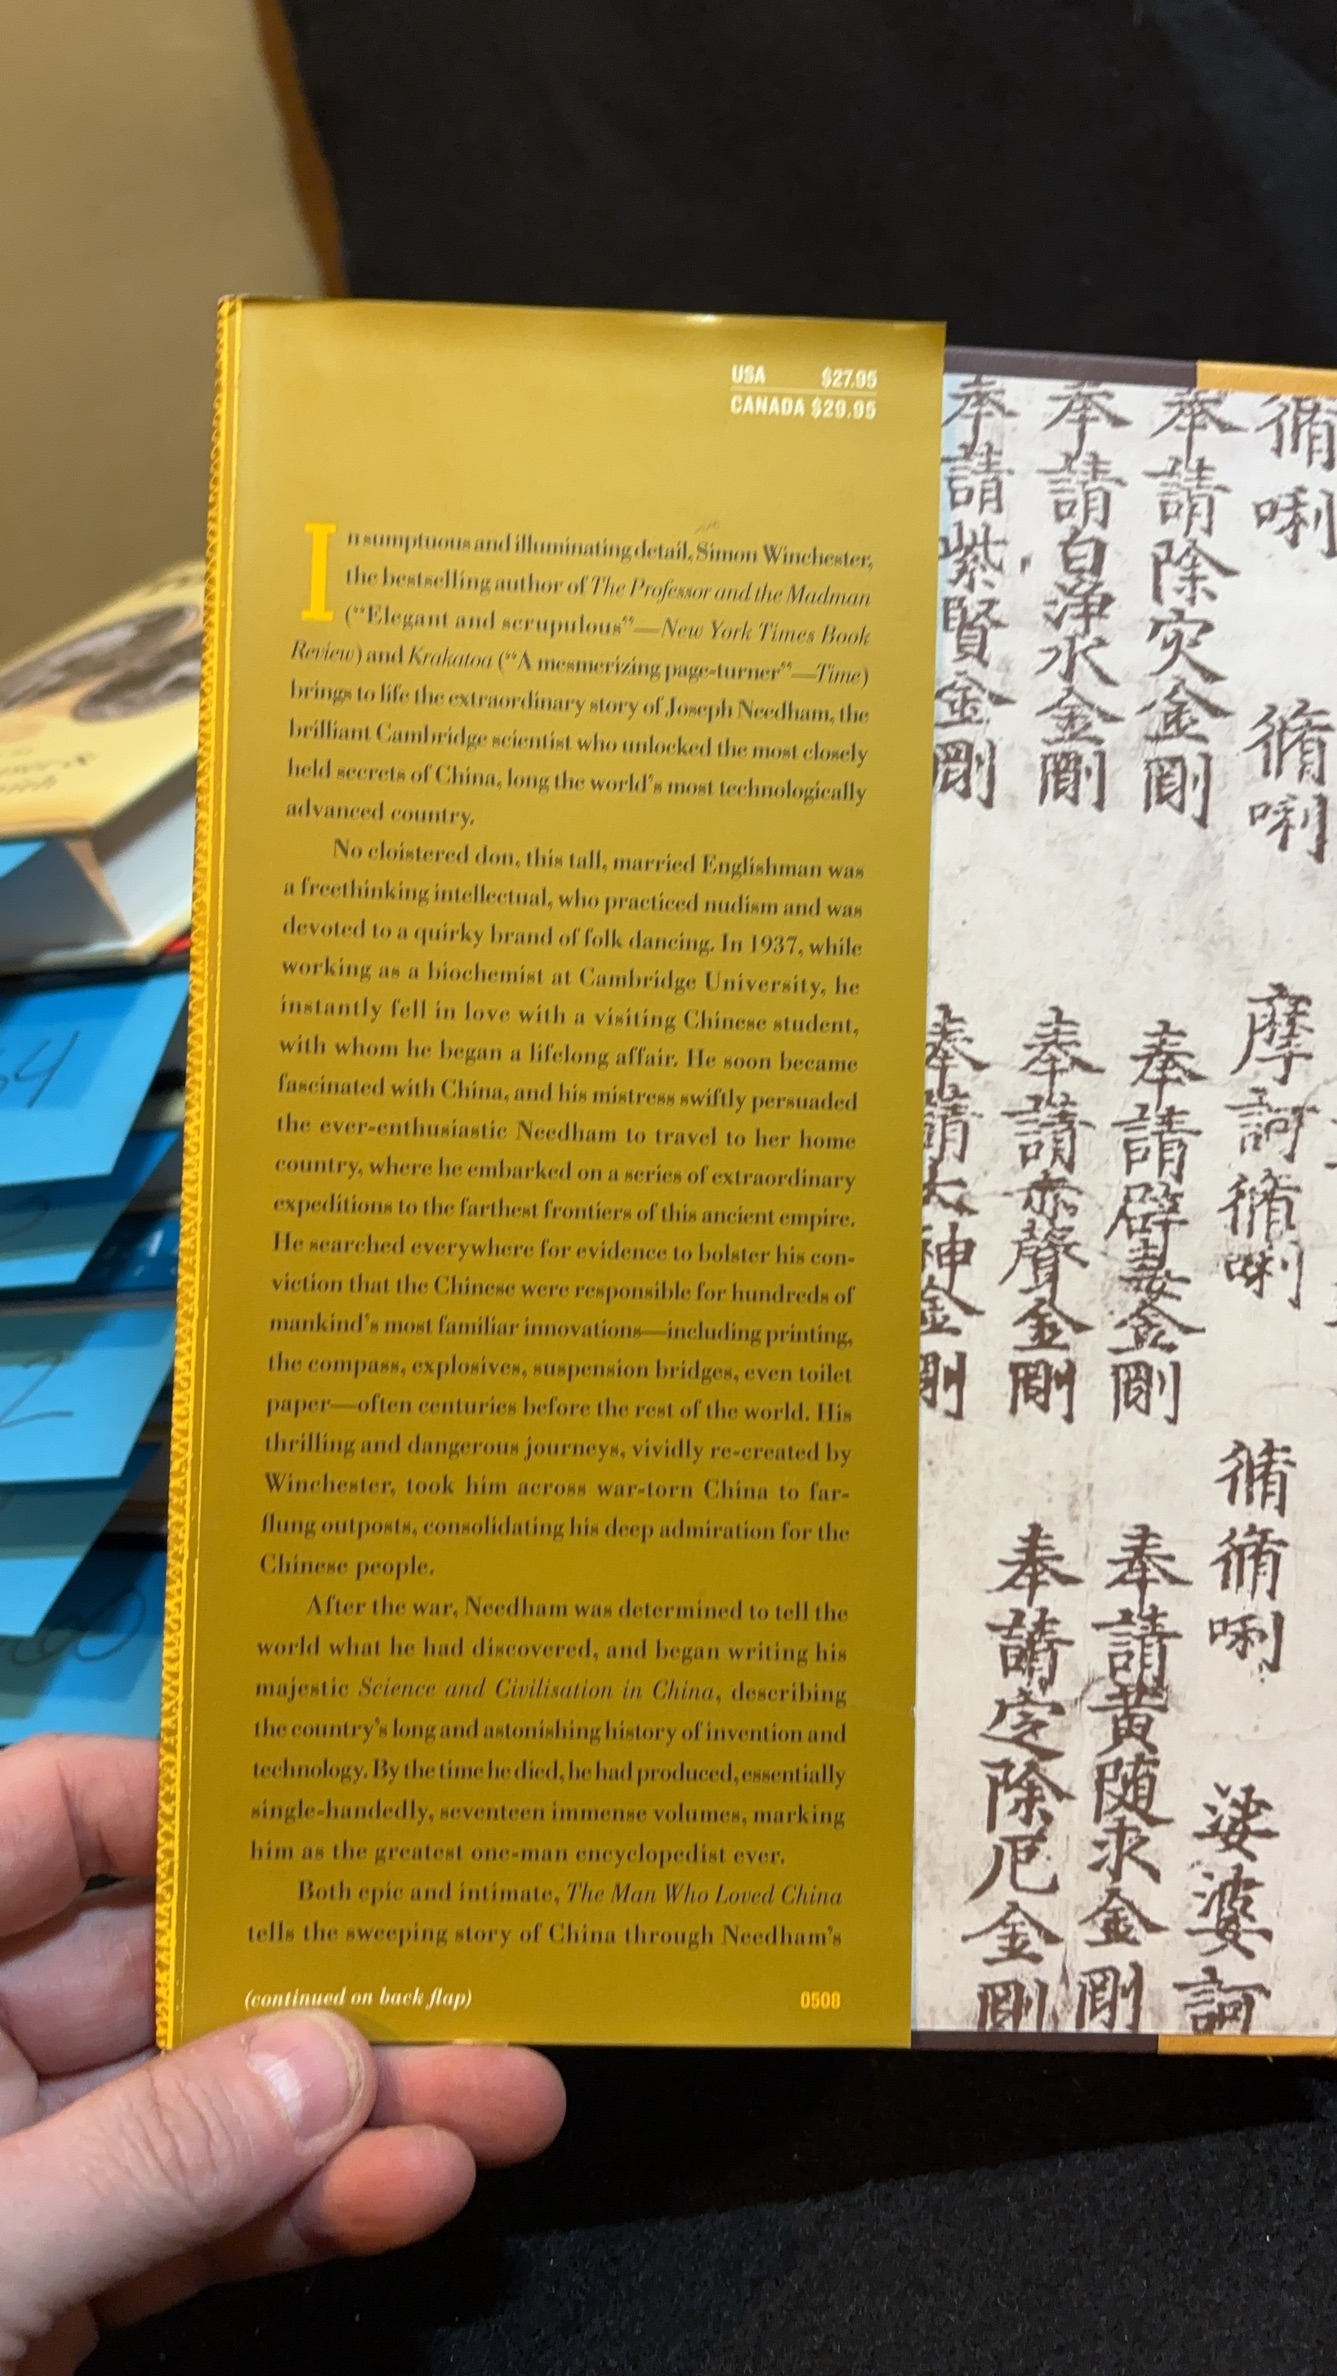 USA $27.95
CANADA $29.95
In sumptuous and illuminating detail, Simon Winchester,
the bestselling author of The Professor and the Madman
(“Elegant and scrupulous”—New York Times Book
Review) and Krakatoa (“A mesmerizing page-turner”—Time)
brings to life the extraordinary story of Joseph Needham, the
brilliant Cambridge scientist who unlocked the most closely
held secrets of China, long the world's most technologically
advanced country.
No cloistered don, this tall, married Englishman was
a freethinking intellectual, who practiced nudism and was
devoted to a quirky brand of folk dancing. In 1937, while
working as a biochemist at Cambridge University, he
instantly fell in love with a visiting Chinese student,
with whom he began a lifelong affair. He soon became
fascinated with China, and his mistress swiftly persuaded
the ever-enthusiastic Needham to travel to her home
country, where he embarked on a series of extraordinary
expeditions to the farthest frontiers of this ancient empire.
He searched everywhere for evidence to bolster his con-
viction that the Chinese were responsible for hundreds of
mankind's most familiar innovations—including printing,
the compass, explosives, suspension bridges, even toilet
paper—often centuries before the rest of the world. His
thrilling and dangerous journeys, vividly re-created by
Winchester, took him across war-torn China to far-
flung outposts, consolidating his deep admiration for the
Chinese people.
After the war, Needham was determined to tell the
world what he had discovered, and began writing his
majestic Science and Civilisation in China, describing
the country's long and astonishing history of invention and
technology. By the time he died, he had produced, essentially
single-handedly, seventeen immense volumes, marking
him as the greatest one-man encyclopedist ever.
Both epic and intimate, The Man Who Loved China
tells the sweeping story of China through Needham's
(continued on back flap)
0508
脩唎
脩唎
摩訶脩唎
脩脩唎
娑婆訶
奉請除灾金剛
奉請辟毒金剛
奉請黄随求金剛
奉請白淨水金剛
奉請赤聲金剛
奉請定除厄金剛
奉請紫賢金剛
奉請大神金剛